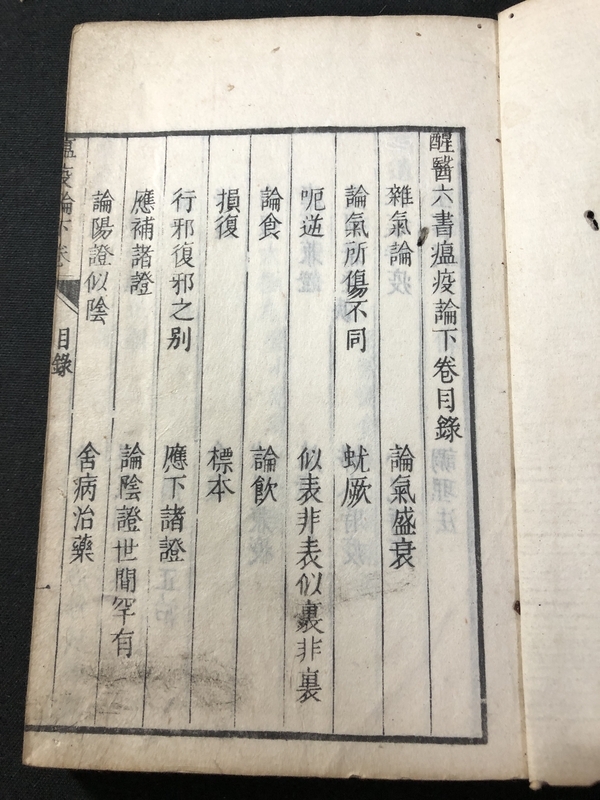 醒醫六書瘟疫論下卷目錄
雜氣論 論氣盛衰
論氣所傷不同 蚘厥
呃逆 似表非表似裏非裏
論食 論飲
損復 標本
行邪復邪之別 應下諸證
應補諸證 論陰證世間罕有
論陽證似陰 舍病治藥
瘟疫論下卷 目錄